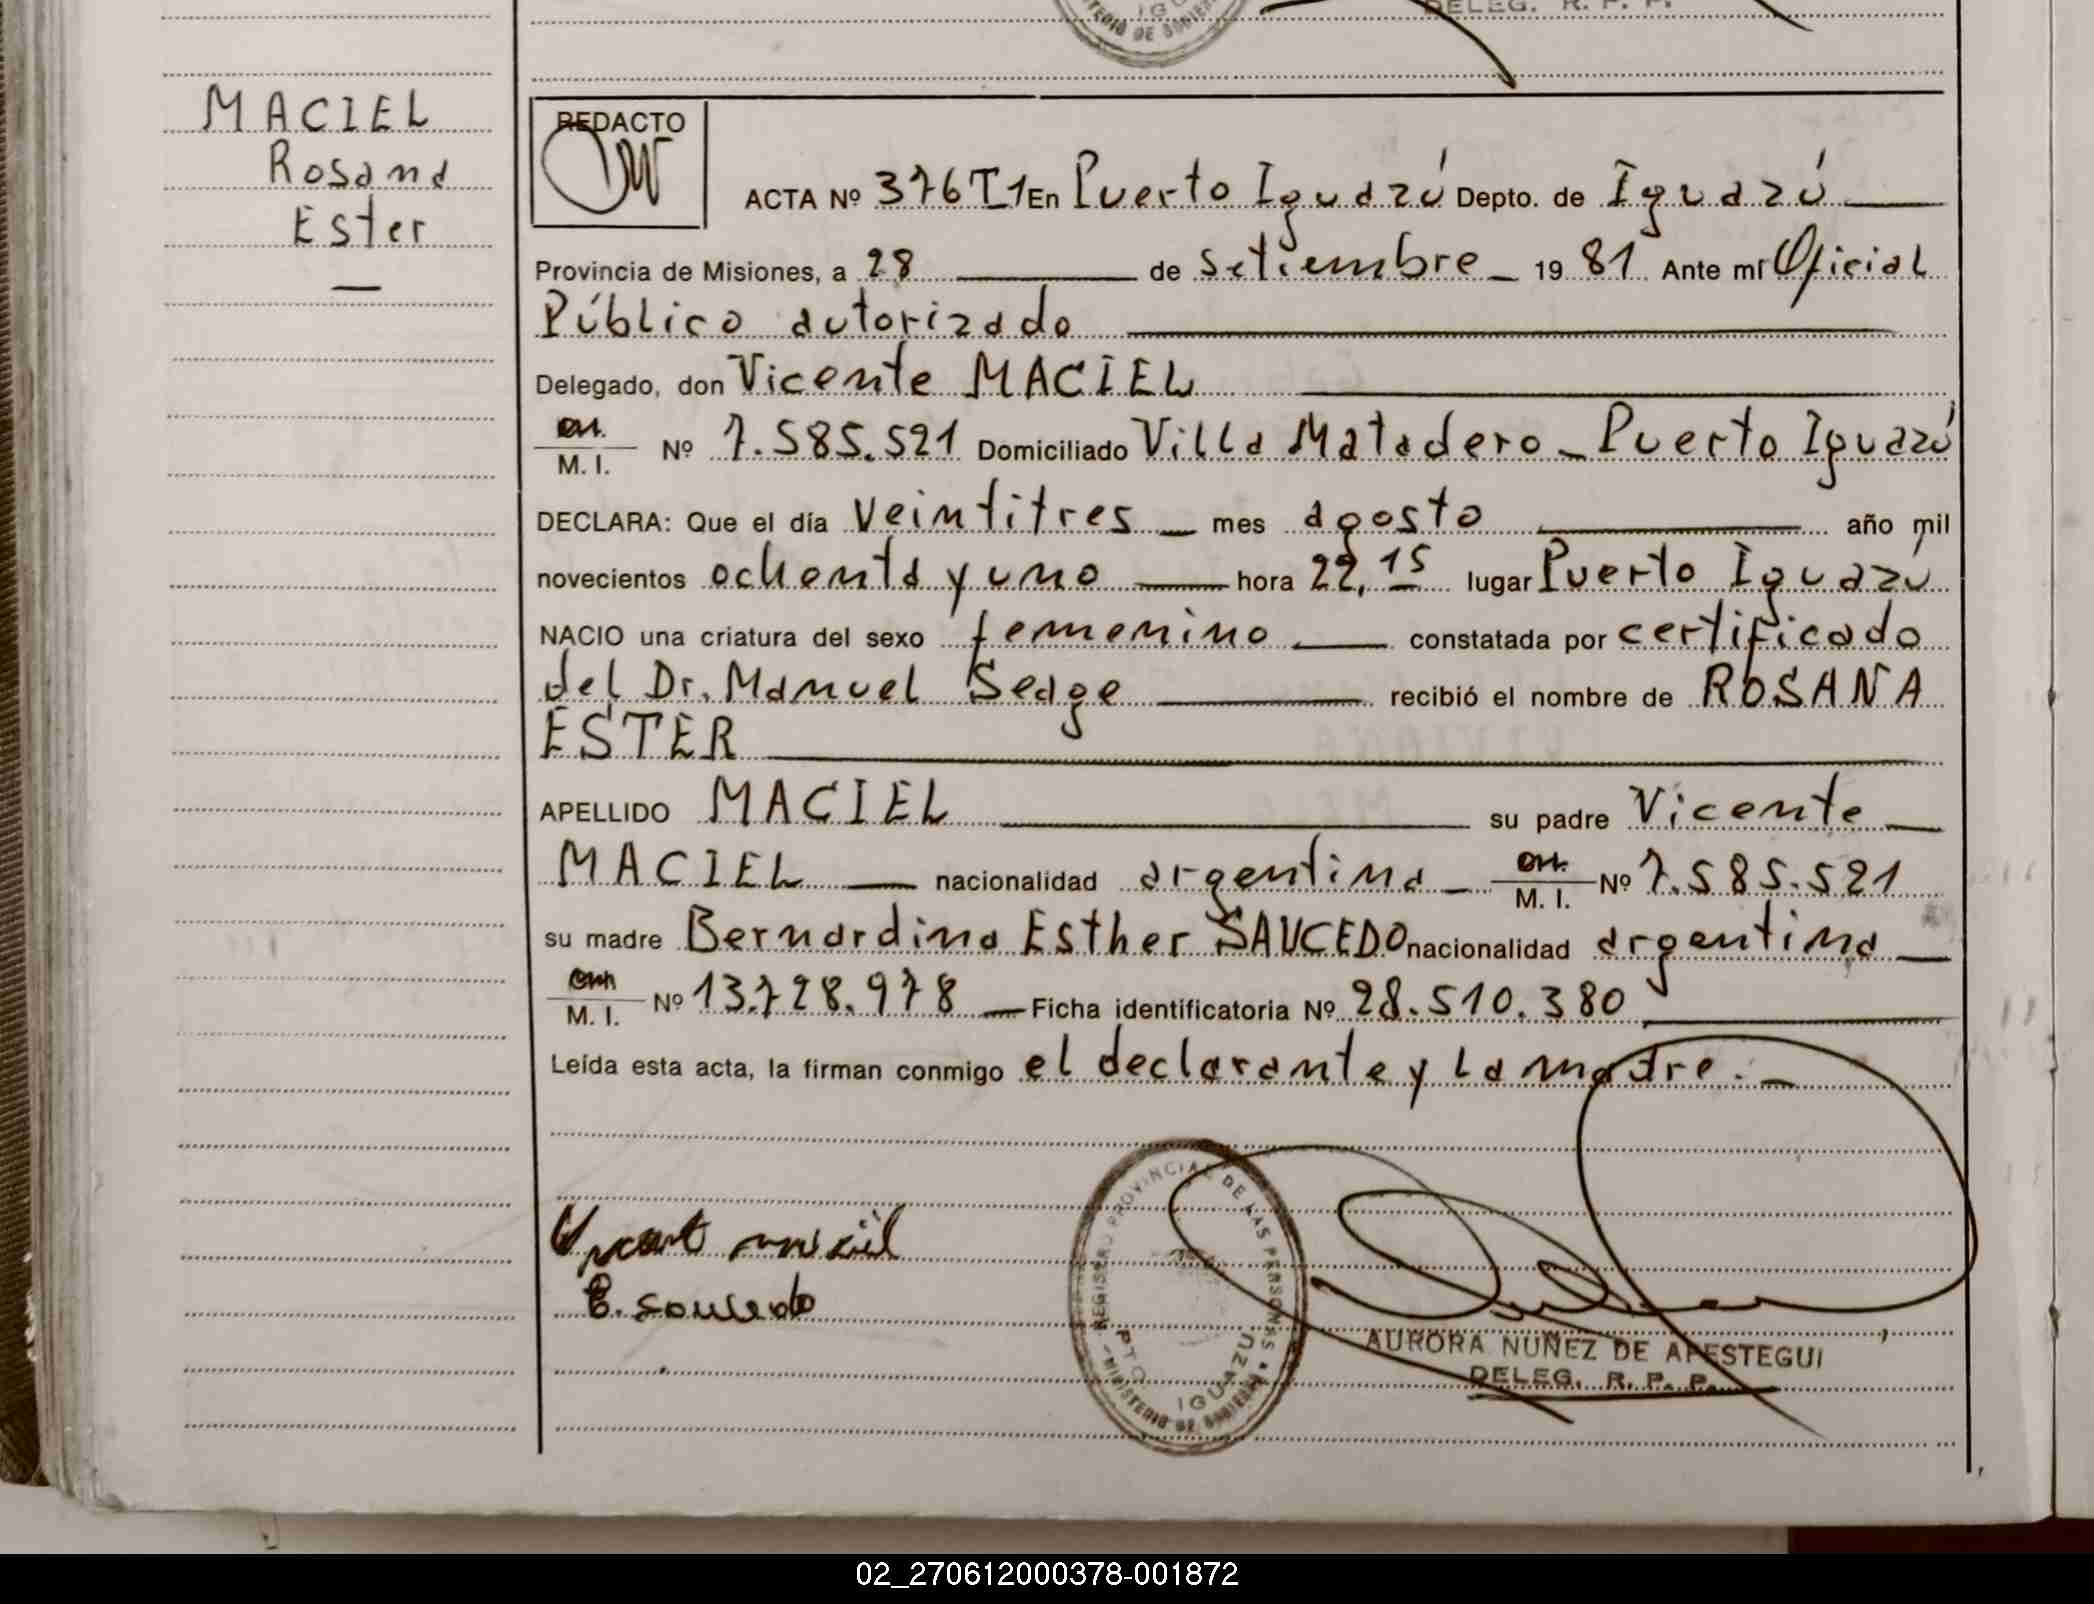 IGU
MINISTERIO DE GOBIER
DELEG. R. P. P.
MACIEL
Rosana
Ester
REDACTO
ACTA Nº 376 T1 En Puerto Iguazú Depto. de Iguazú
Provincia de Misiones, a 28 de setiembre 19 81 Ante mí Oficial
Público autorizado
Delegado, don Vicente MACIEL
M. I. Nº 7.585.521 Domiciliado Villa Matadero - Puerto Iguazú
DECLARA: Que el día veintitres mes agosto año mil
novecientos ochenta y uno hora 22,15 lugar Puerto Iguazu
NACIO una criatura del sexo femenino constatada por certificado
del Dr. Manuel Sedge recibió el nombre de ROSANA
ESTER
APELLIDO MACIEL su padre Vicente
MACIEL nacionalidad argentina M. I. Nº 7.585.521
su madre Bernardina Esther SAUCEDO nacionalidad argentina
M. I. Nº 13.728.978 Ficha identificatoria Nº 28.510.380
Leída esta acta, la firman conmigo el declarante y la madre.-
B. Soucedo
REGISTRO PROVINCIAL DE LAS PERSONAS
PTO. IGUAZU
MINISTERIO DE GOBIERNO
AURORA NUÑEZ DE APESTEGUI
DELEG. R. P. P.
02_270612000378-001872